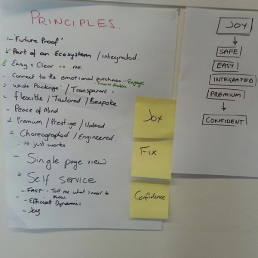 PRINCIPLES.
- Future Proof
- Part of an Ecosystem / integrated.
- Easy + Clear
- Connect to the emotional purchase - 
- Whole Package / Transparent
- Flexible / Tailored / Bespoke
- Peace of Mind
- Premium / Prestige / Valued
- Choreographed / Engineered.
- it just works
- Single page view
- Self Service
- FAST - Tell me what I need to know
- Efficient Dynamics
- Joy
Joy
Fix
Confidence
JOY
SAFE
EASY
INTEGRATED
PREMIUM
CONFIDENT